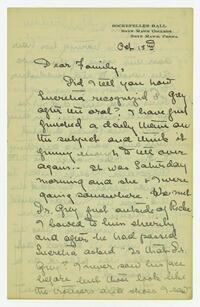 ROCKEFELLER HALL
BRYN MAWR COLLEGE
BRYN MAWR, PENNA.
Oct. 15
Dear Family,
Did I tell you how
Lucretia recognized Dr. Grey
after the oral? I have just
finished a daily theme on
the subject and think it
funny enough to tell over
again. It was Saturday
morning and she & I were
going somewhere. We met
Dr. Grey just outside of Rocke.
I bowed to him sheerily
and after he had passed
Lucretia asked "Is that Dr.
Grey? I never saw his face
before but those look like
the trousers and shoes I saw